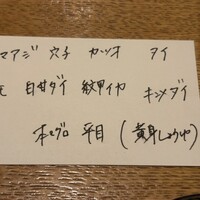 マアジ 穴子 カツオ タイ
白甘ダイ 紋甲イカ キンメダイ
本マグロ 平目 (黄身しょうゆ)